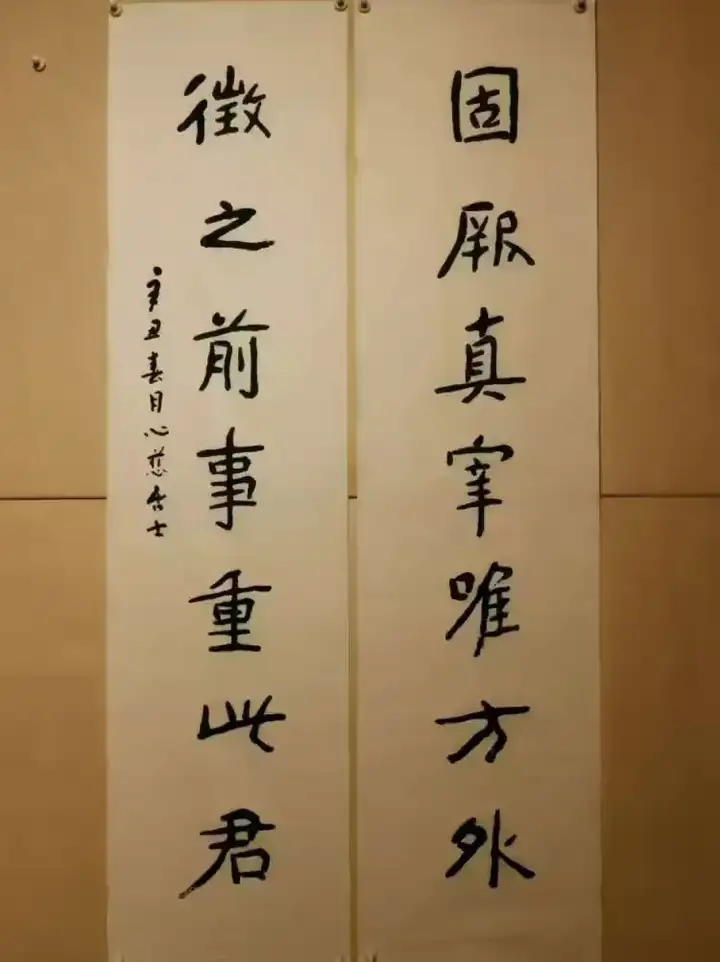 固厥真宰唯方外
徵之前事重此君
辛丑春月心慈居士